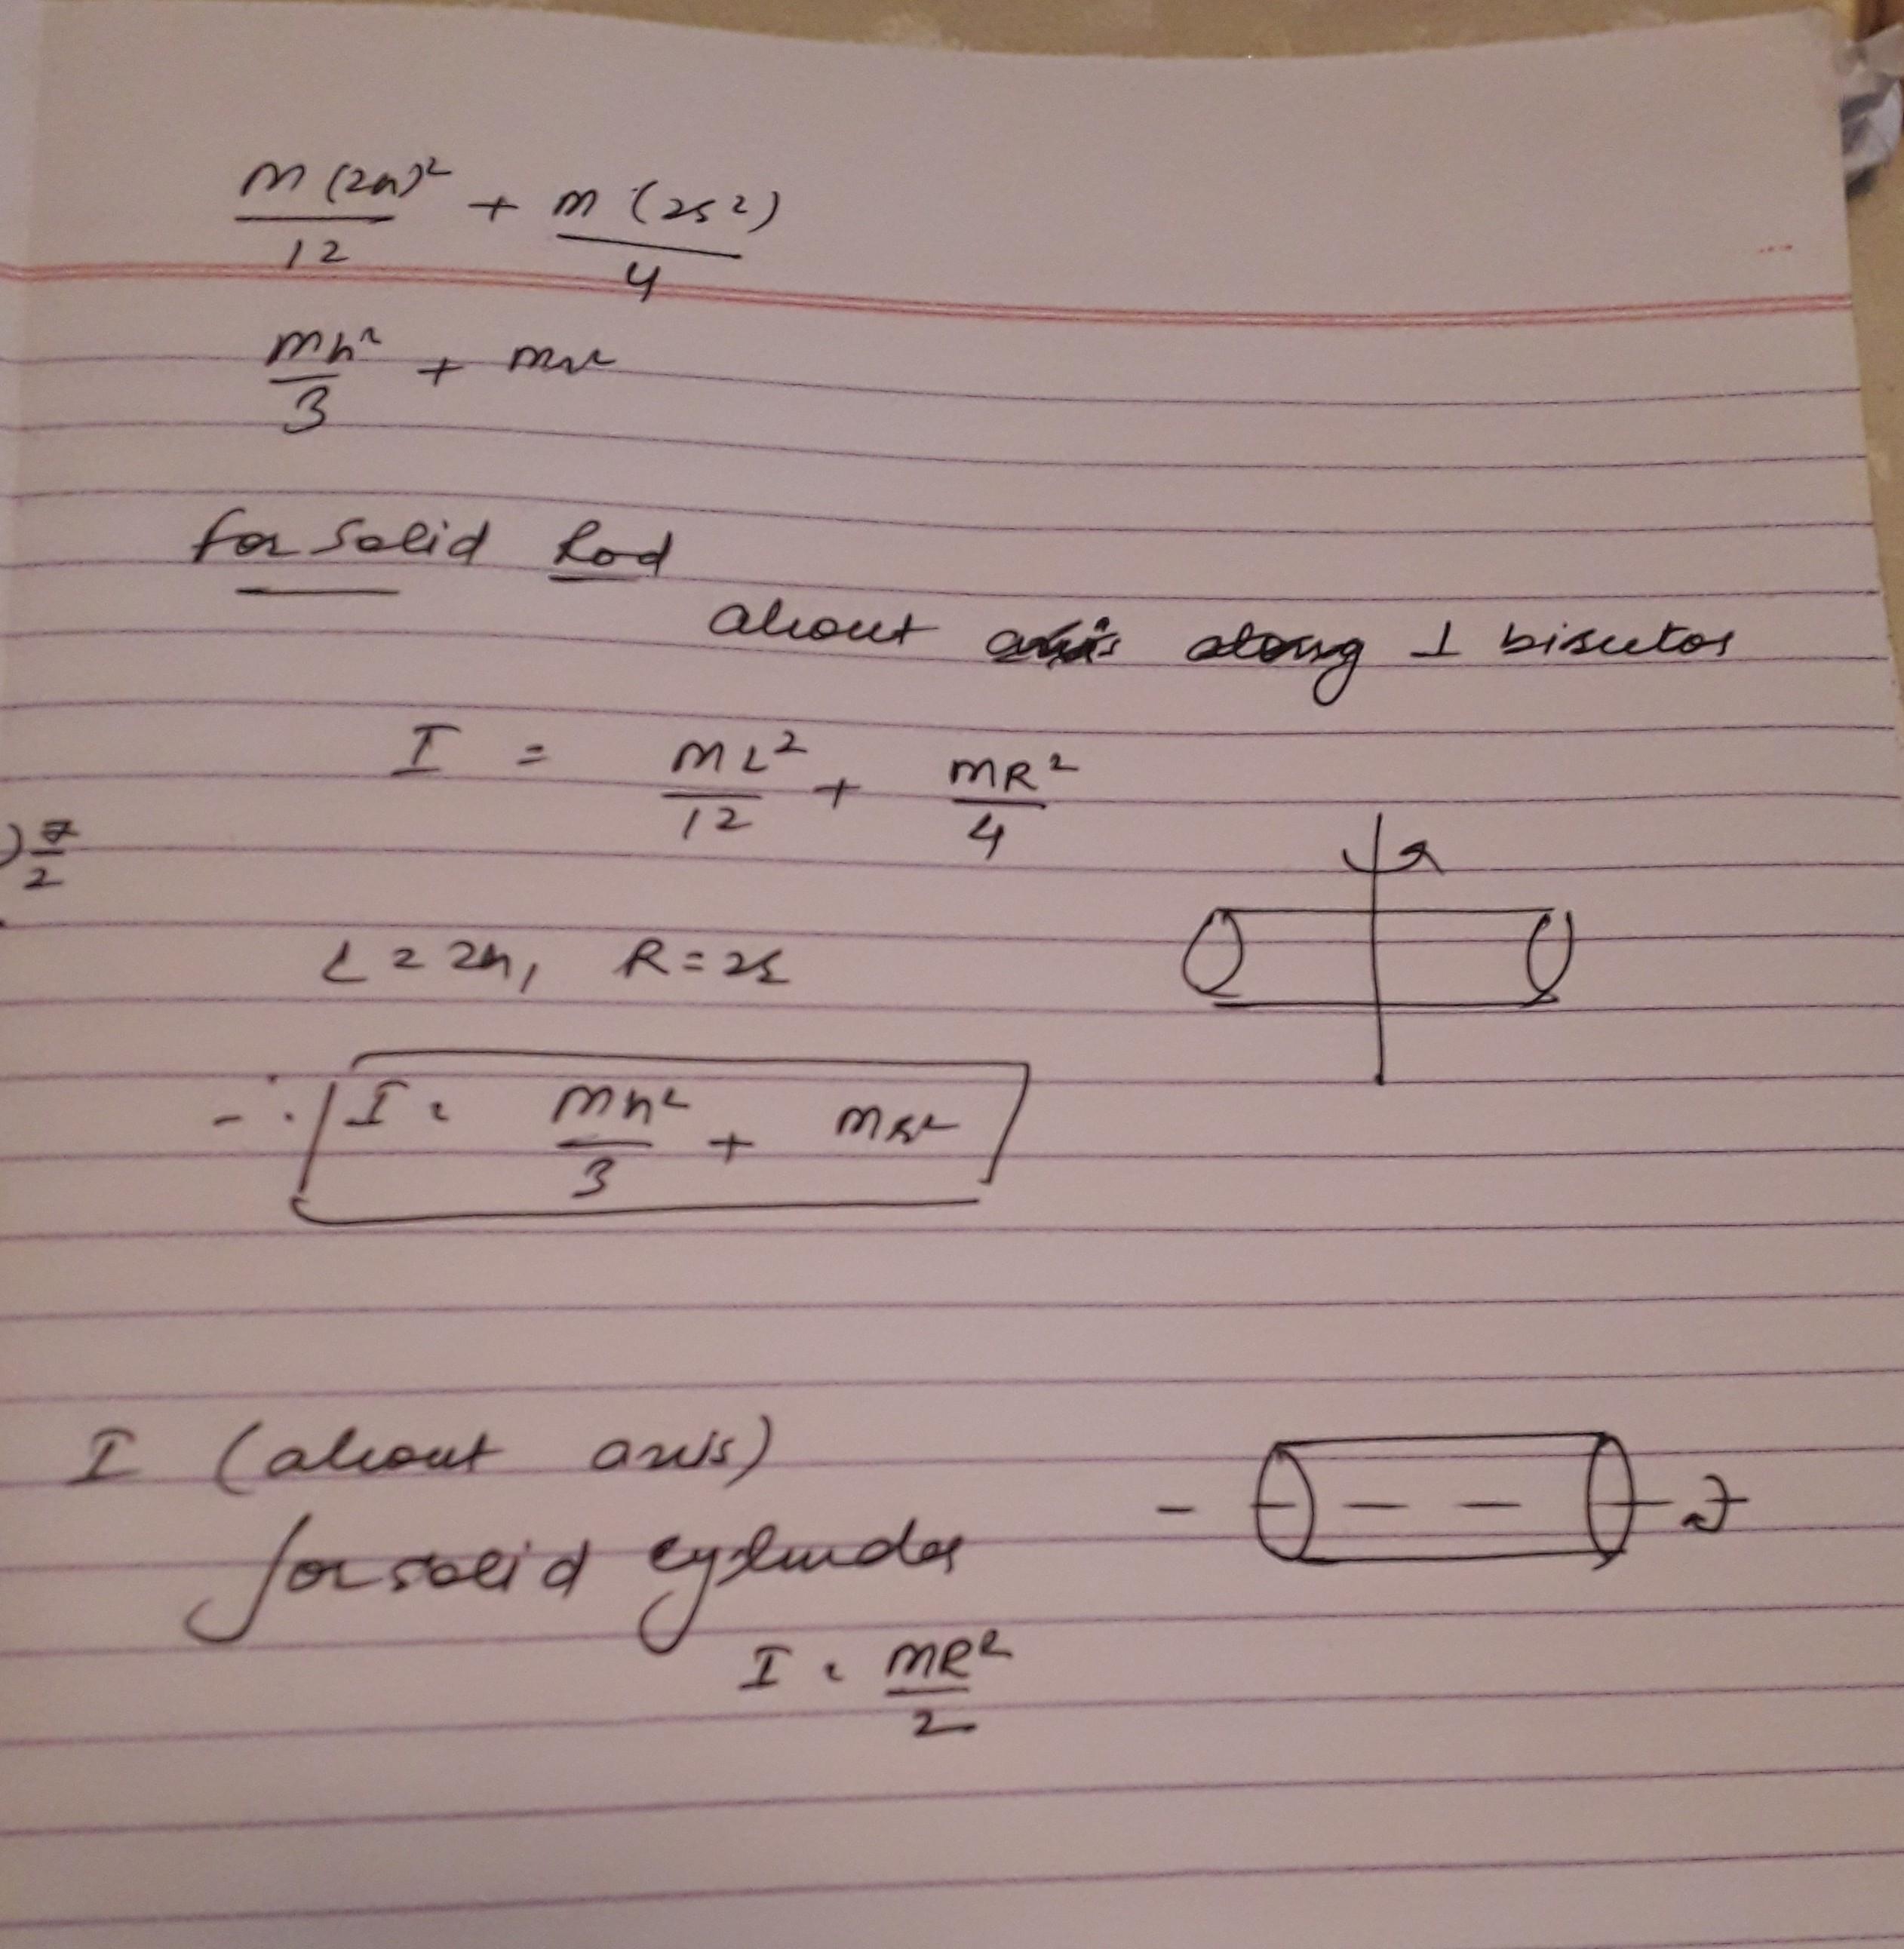 m(2h)²/12 + m(2r²)/4
mh²/3 + mr²
for solid Rod
about axis along ⊥ bisector
I = ML²/12 + MR²/4
) 7/2
L = 2h, R = 2r
∴ I = mh²/3 + mr²
I (about axis)
for solid cylinder
I = MR²/2